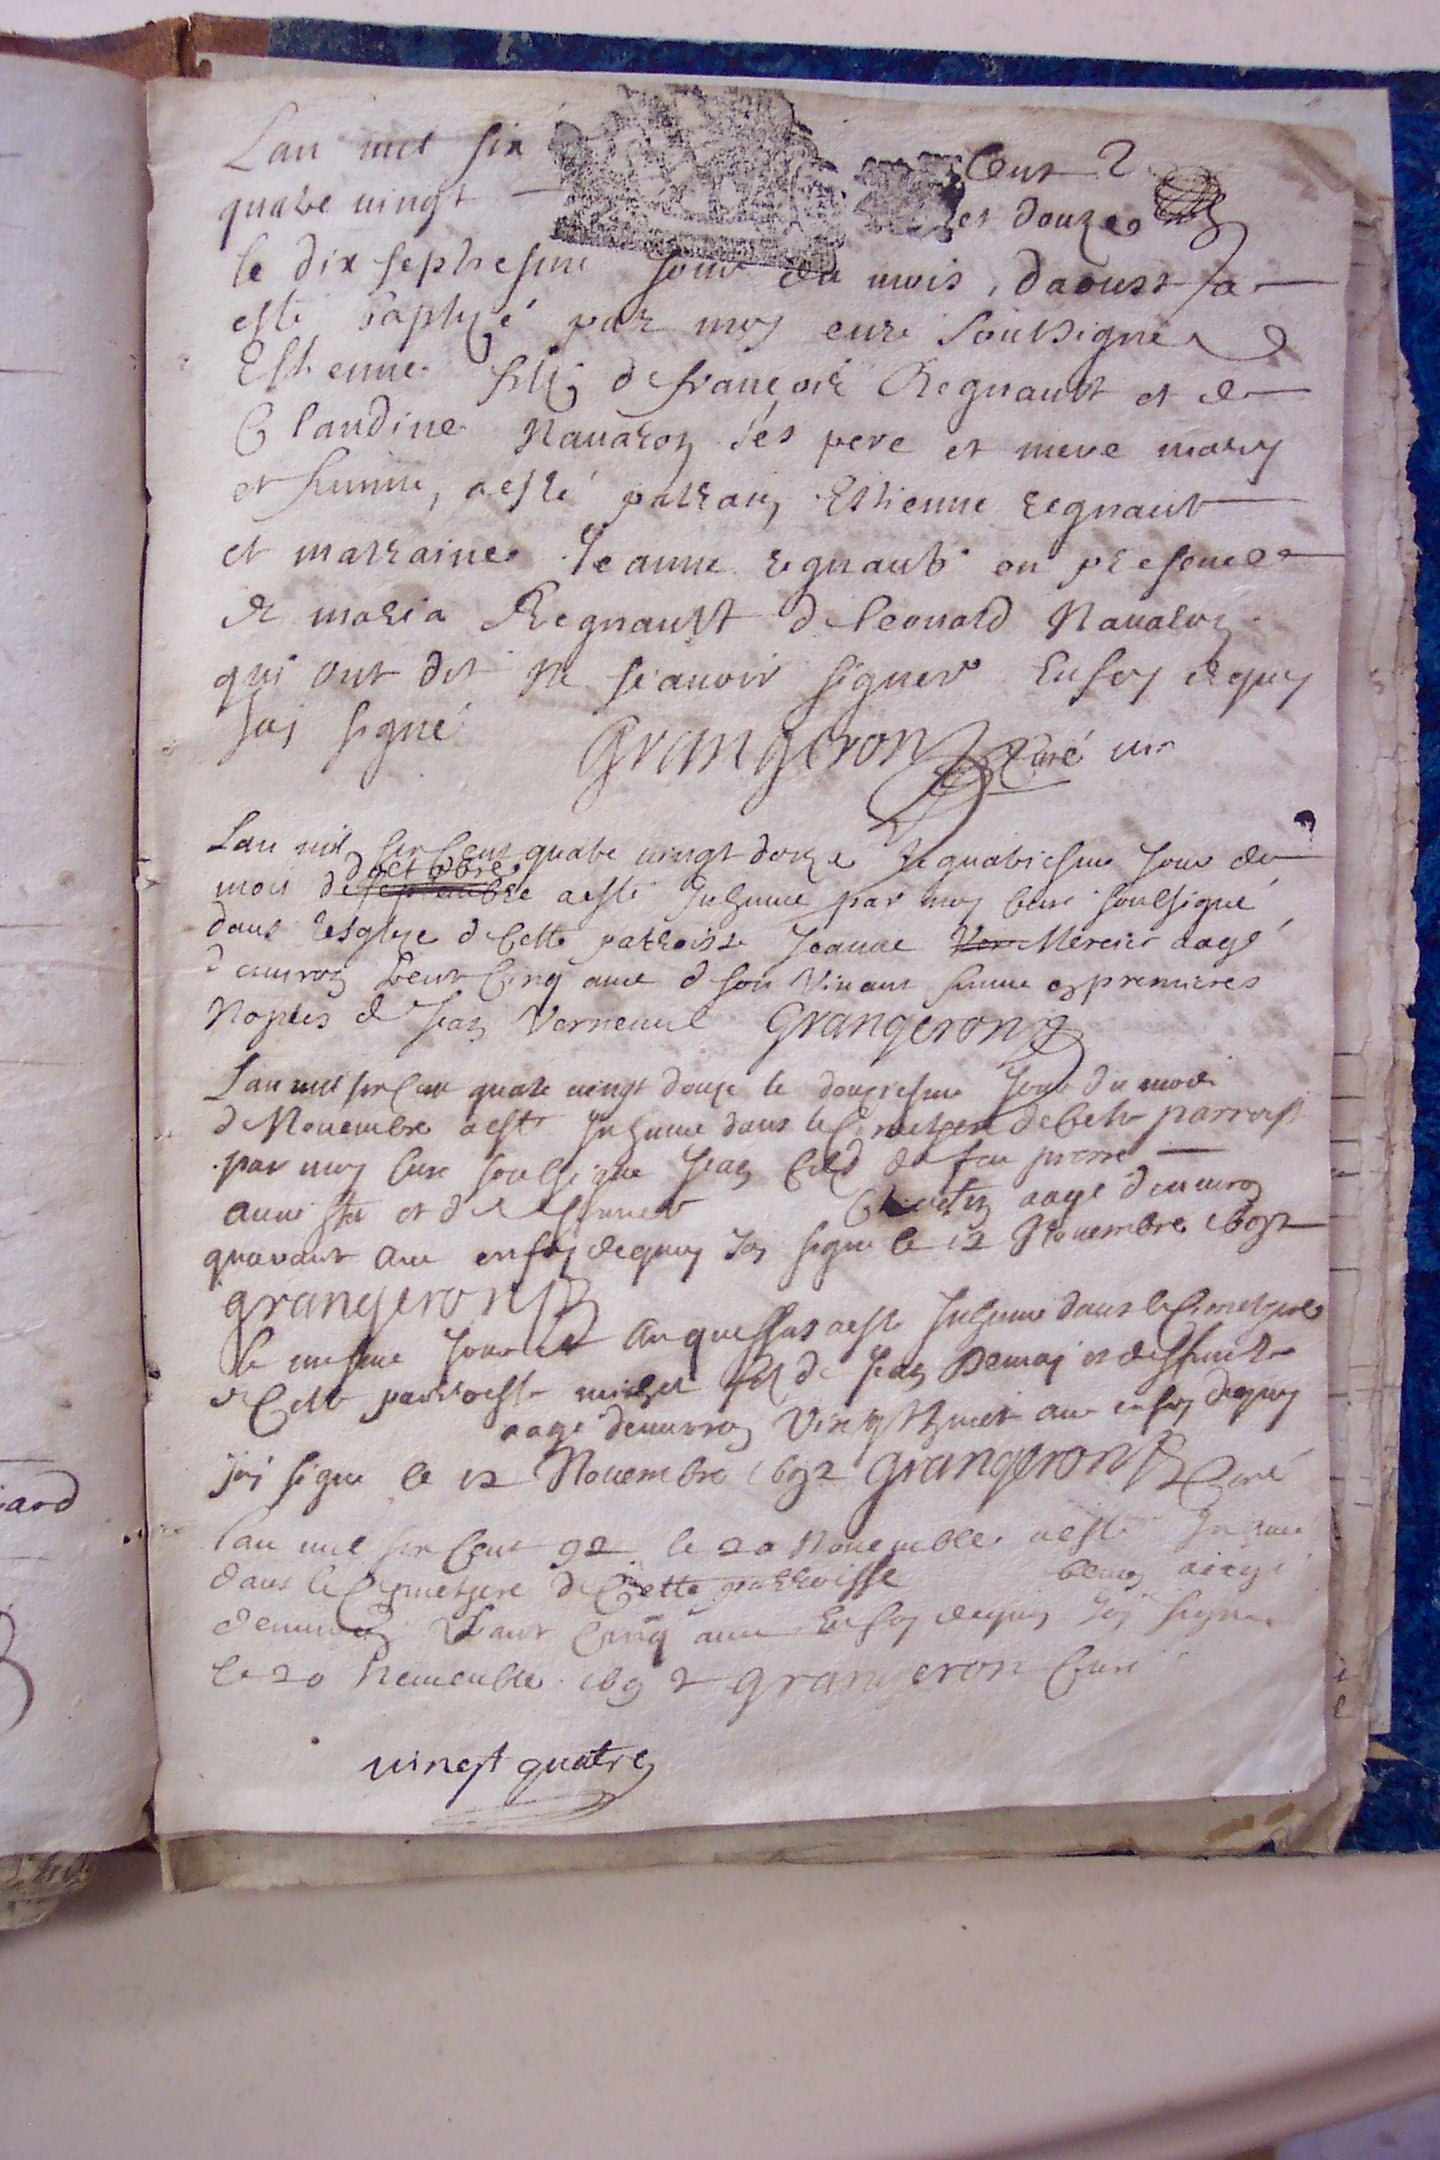 Lan mil six Cent
quatre vingt et douze
le dix septiesme Jour du mois daoust a
esté baptizé par moy curé soubsigné
Estienne filz de françois Regnault et de
Claudine Nauaron ses pere et mere mary
et femme, a esté parrain Estienne regnault
et marraine Jeanne regnault en presence
de maria Regnault de leonard Nauaron
qui ont dit ne scauoir signer En foy dequoy
Jay signé Grangeron Curé
Lan mil six Cent quatre vingt douze le quatriesme Jour du
mois doctobre a esté Inhumé par moy Curé soubsigné
dans lesglize de Cette parroisse Jeanne Mercier aagé
denuiron Cinq ans de son Viuant femme en premieres
Nopces de Jean Verneuil Grangeron
Lan mil six Cent quatre vingt douze le douziesme Jour du mois
de Nouembre a esté Inhumé dans le Cimetiere de Cette parroisse
par moy Curé soubsigné Jean filz de feu pierre
et de aagé denuiron
quarante ans en foy dequoy Jay signé le 12 Nouembre 1692
grangeron
le mesme Jour et an que dessus a esté Inhumé dans le Cimetiere
de Cette parroisse michel filz de Jean et deffuncte
aagé denuiron Vingt huict ans en foy dequoy
jay signé le 12 Nouembre 1692 grangeron Curé
lan mil six Cent 92 le 20 Nouembre a esté Inhumé
dans le Cymetiere de Cette parroisse aagé
denuiron Cinq ans En foy dequoy Jay signé
le 20 Nouembre 1692 grangeron Curé
vingt quatre